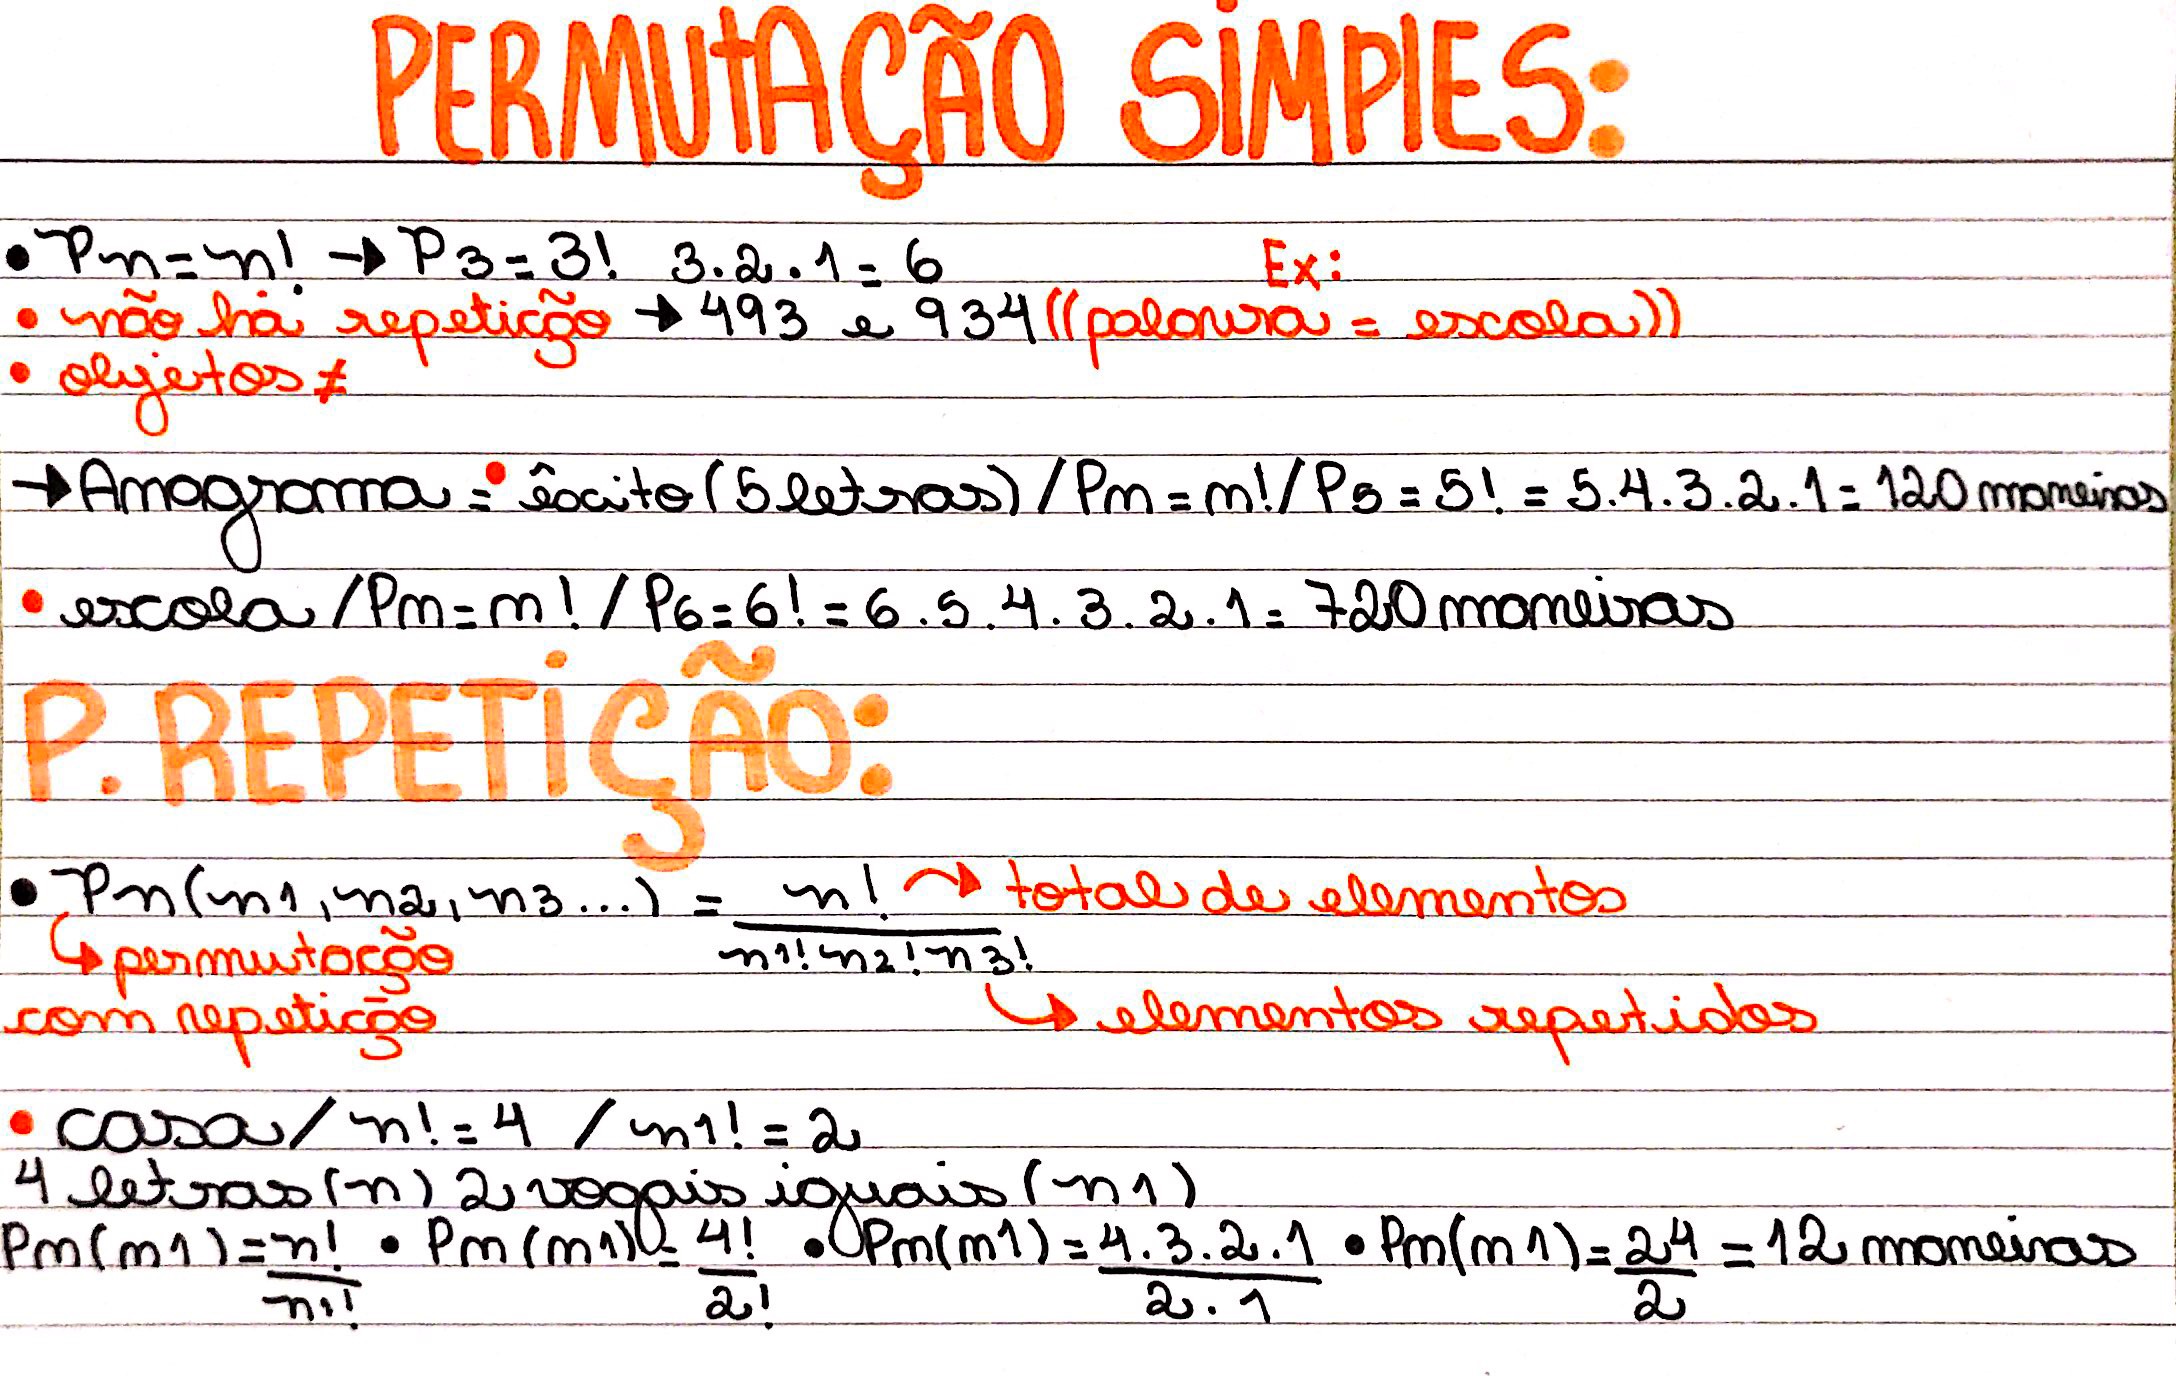 PERMUTAÇÃO SIMPLES:
• Pn = n! → P3 = 3! 3.2.1 = 6 Ex:
• não há repetição → 493 e 934 ((palavra = escola))
• objetos ≠
→ Anagrama = • êxito (5 letras) / Pn = n! / P5 = 5! = 5.4.3.2.1 = 120 maneiras
• escola / Pn = n! / P6 = 6! = 6.5.4.3.2.1 = 720 maneiras
P. REPETIÇÃO:
• Pn(n1, n2, n3...) = n! → total de elementos
↳ permutação n1! n2! n3!
com repetição ↳ elementos repetidos
• casa / n! = 4 / n1! = 2
4 letras (n) 2 vogais iguais (n1)
Pn(n1) = n! • Pn(n1) = 4! • Pn(n1) = 4.3.2.1 • Pn(n1) = 24 = 12 maneiras
n1! 2! 2.1 2